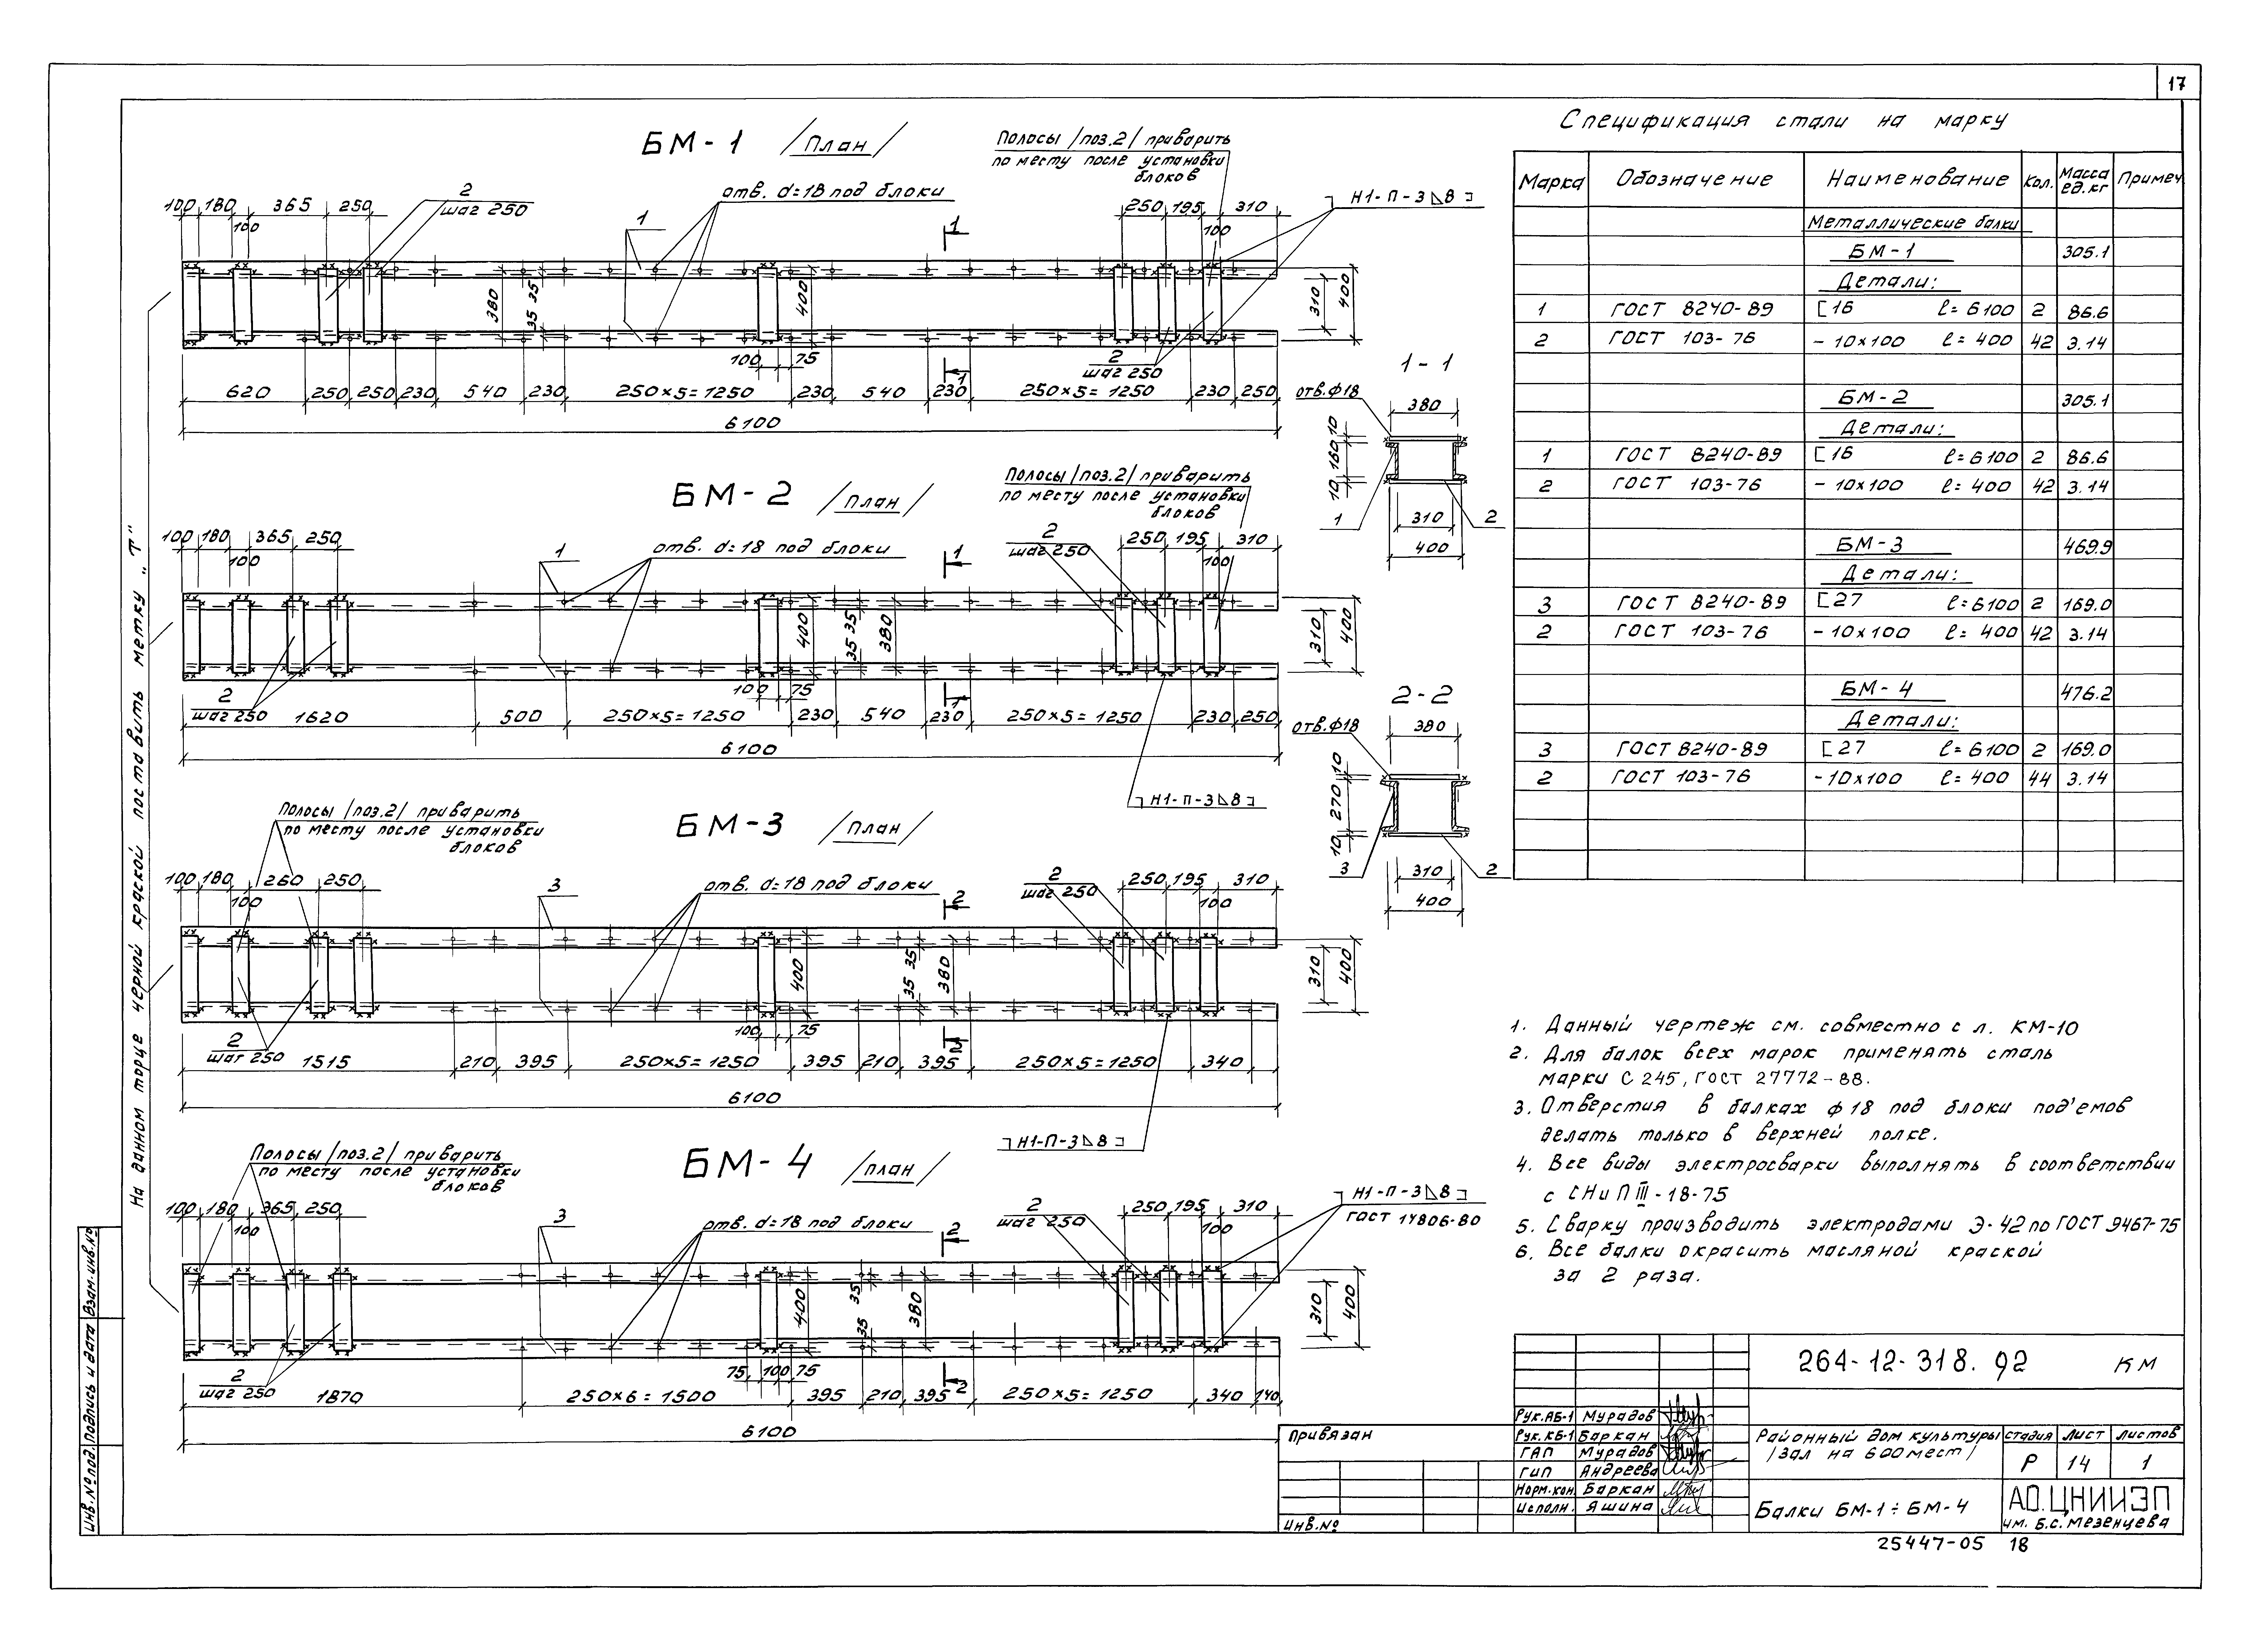 17
БМ-1 /План/
Полосы /поз.2/ приварить
по месту после установки
блоков
2
шаг 250
отв. d=18 под блоки
1
1
Н1-П-3⊿8
100 180 365 250
100
250 195 310
100
380
35 35
400
310
400
100 75
2
шаг 250
1
620 250 250 230 540 230 250×5=1250 230 540 230 250×5=1250 230 250
6100
БМ-2 /План/
Полосы /поз.2/ приварить
по месту после установки
блоков
100 180 365 250
100
1
отв. d=18 под блоки
1
2
шаг 250
250 195 310
100
400
35 35
380
310
400
2
шаг 250
100 75
1
1620 500 250×5=1250 230 540 230 250×5=1250 230 250
6100
Н1-П-3⊿8
Полосы /поз.2/ приварить
по месту после установки
блоков
БМ-3 /План/
100 180 260 250
100
3
отв. d=18 под блоки
2
2
шаг 250
250 195 310
100
400
35 35
380
310
400
2
шаг 250
100 75
2
1515 210 395 250×5=1250 395 210 395 250×5=1250 340
6100
Н1-П-3⊿8
Полосы /поз.2/ приварить
по месту после установки
блоков
БМ-4 /план/
100 180 365 250
100
3
отв. d=18 под блоки
2
2
шаг 250
250 195 310
100
Н1-П-3⊿8
ГОСТ 14806-80
400
35
35
380
310
400
2
шаг 250
75 100 75
2
1870 250×6=1500 395 210 395 250×5=1250 340 140
6100
На данном торце черной краской поставить метку „Т"
1-1
отв.ф18
380
10
160
10
1
310
2
400
2-2
отв.ф18
380
10
270
10
3
310
2
400
Спецификация стали на марку
Марка Обозначение Наименование Кол. Масса ед.кг Примеч
Металлические балки
БМ-1 305.1
Детали:
1 ГОСТ 8240-89 [16 ℓ=6100 2 86.6
2 ГОСТ 103-76 -10×100 ℓ=400 42 3.14
БМ-2 305.1
Детали:
1 ГОСТ 8240-89 [16 ℓ=6100 2 86.6
2 ГОСТ 103-76 -10×100 ℓ=400 42 3.14
БМ-3 469.9
Детали:
3 ГОСТ 8240-89 [27 ℓ=6100 2 169.0
2 ГОСТ 103-76 -10×100 ℓ=400 42 3.14
БМ-4 476.2
Детали:
3 ГОСТ 8240-89 [27 ℓ=6100 2 169.0
2 ГОСТ 103-76 -10×100 ℓ=400 44 3.14
1. Данный чертеж см. совместно с л. КМ-10
2. Для балок всех марок применять сталь
марки С 245, ГОСТ 27772-88.
3. Отверстия в балках ф 18 под блоки под'емов
делать только в верхней полке.
4. Все виды электросварки выполнять в соответствии
с СНиП III-18-75
5. Сварку производить электродами Э-42 по ГОСТ 9467-75
6. Все балки окрасить масляной краской
за 2 раза.
264-12-318.92 КМ
Рук.АБ-1 Мурадов
Рук.КБ-1 Баркан
ГАП Мурадов
ГИП Андреева
Норм.кон. Баркан
Исполн. Яшина
Районный дом культуры
/зал на 600 мест/
стадия Лист Листов
Р 14 1
Балки БМ-1÷БМ-4
АО.ЦНИИЭП
им. Б.С. Мезенцева
Привязан
Инв.№
Инв.№под. Подпись и дата Взам.инв.№
25447-05 18